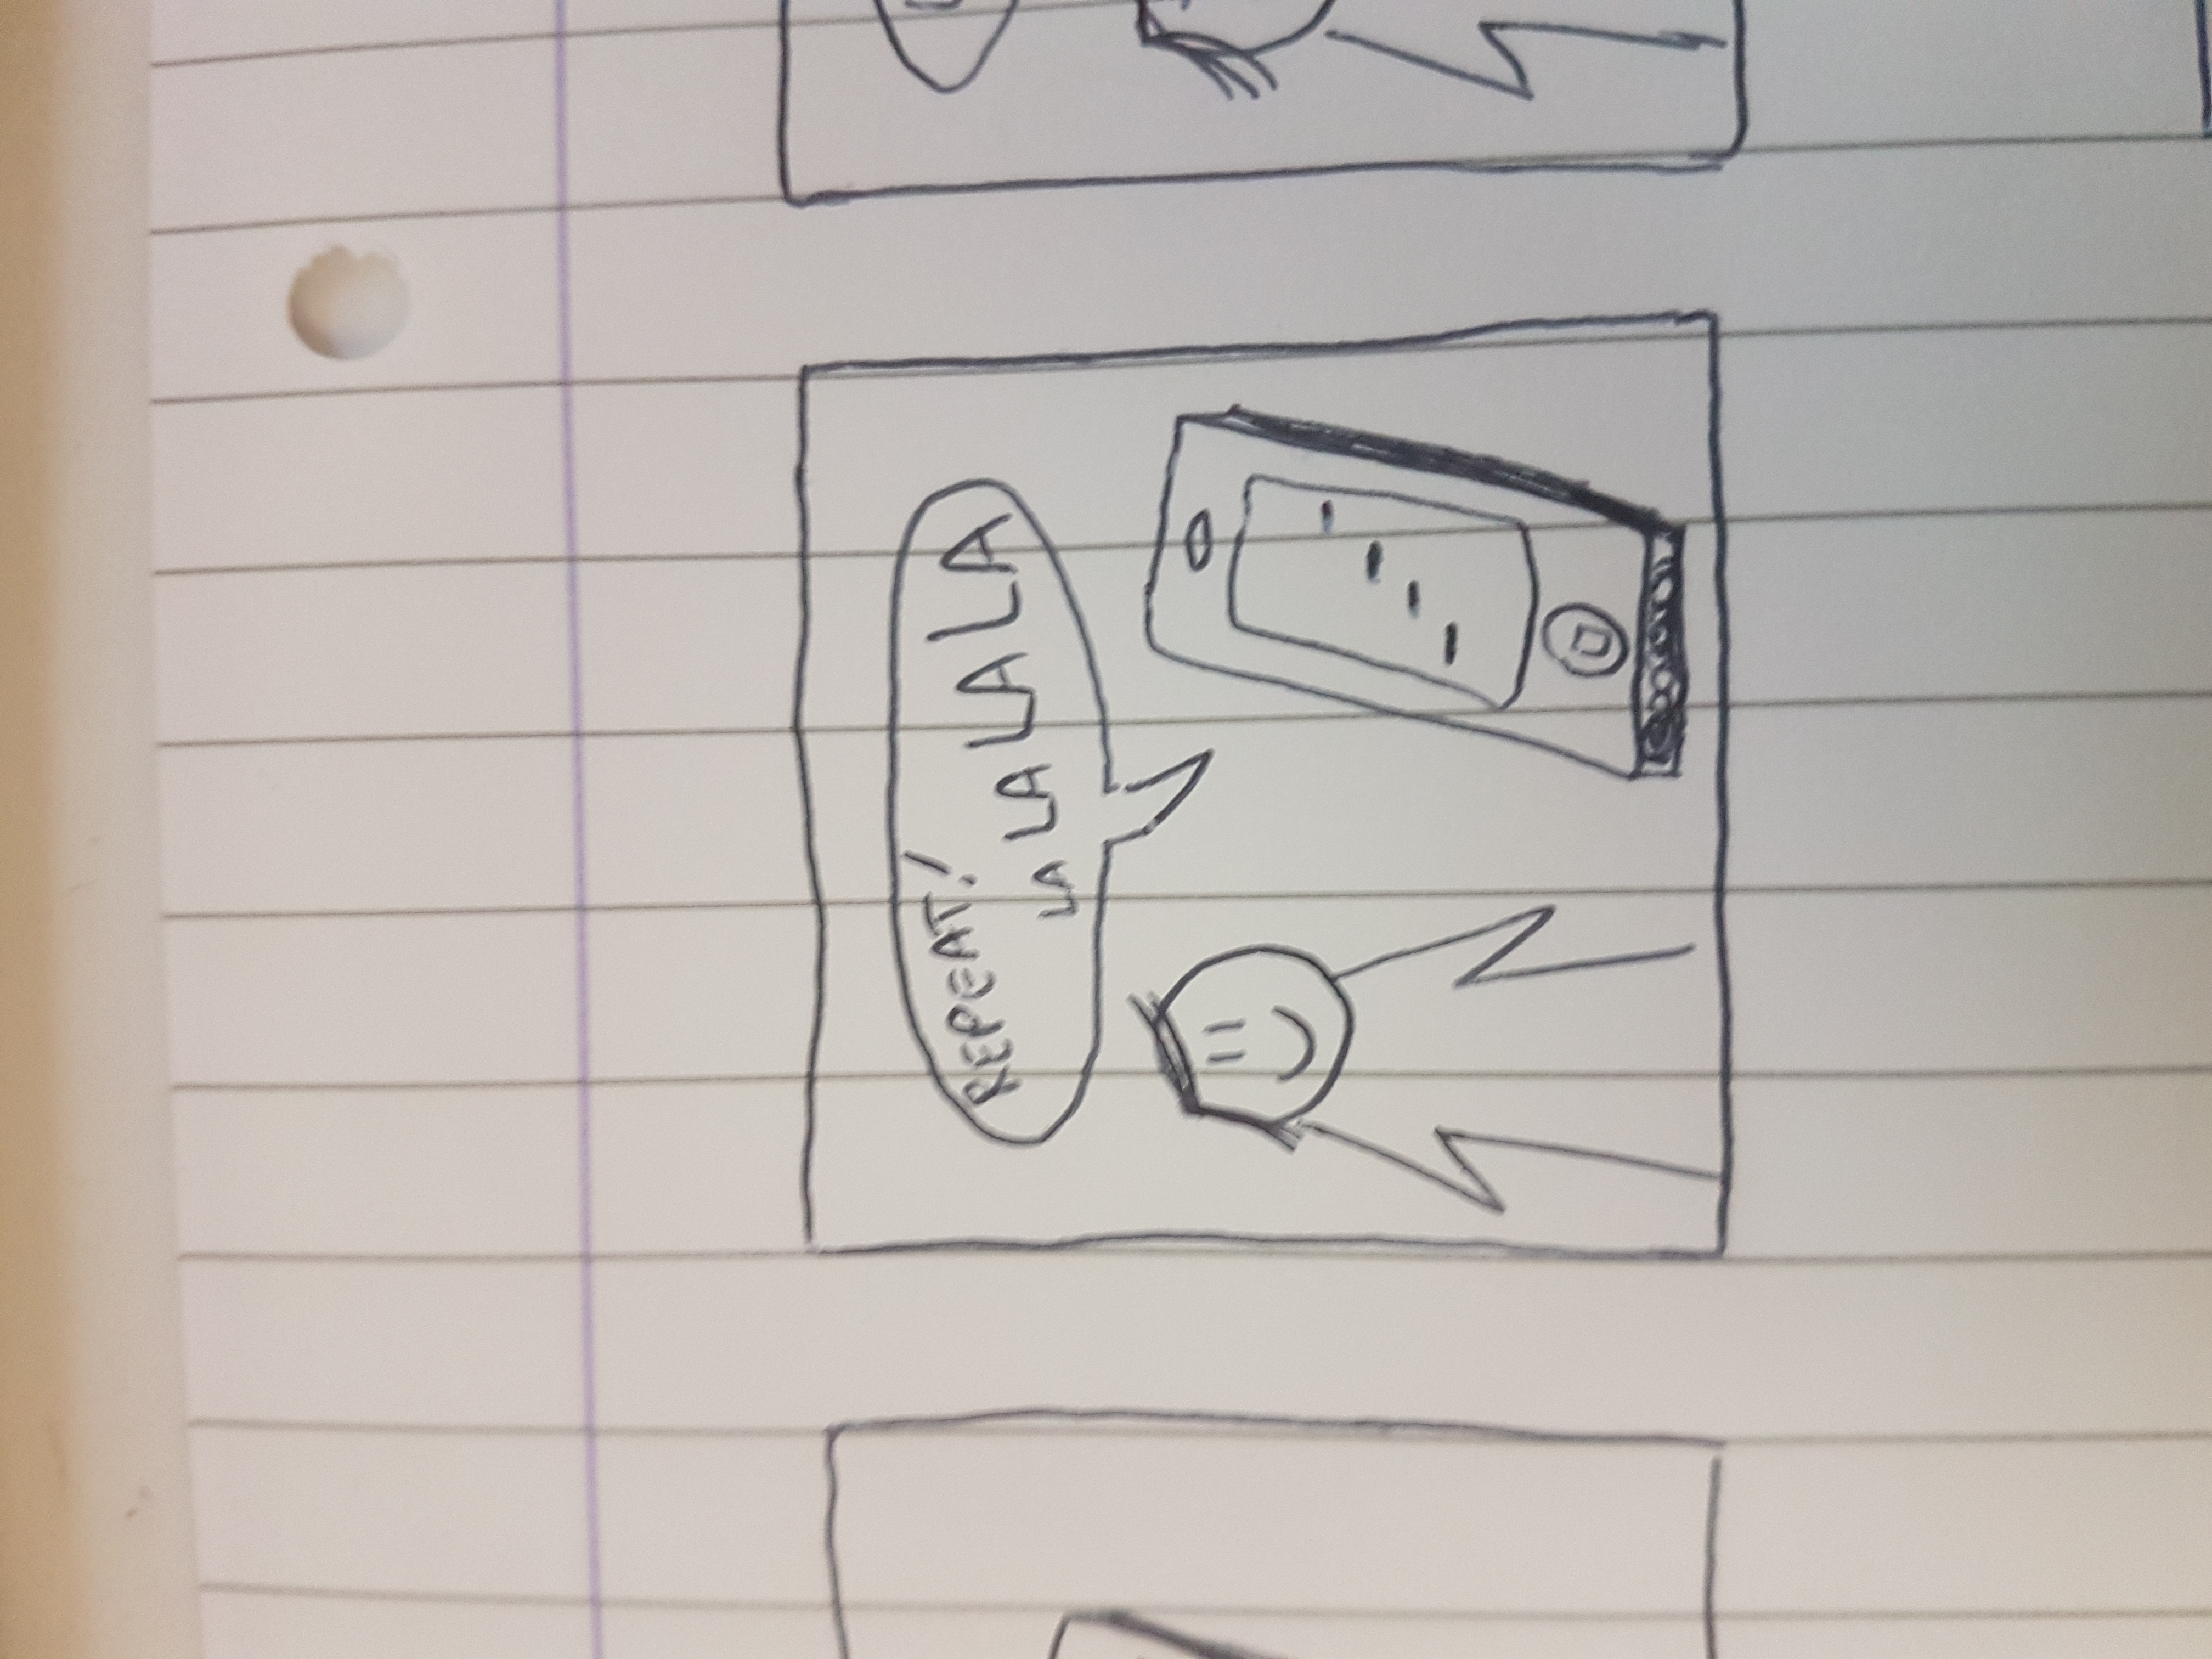 REPEAT!
LA LA LA LA